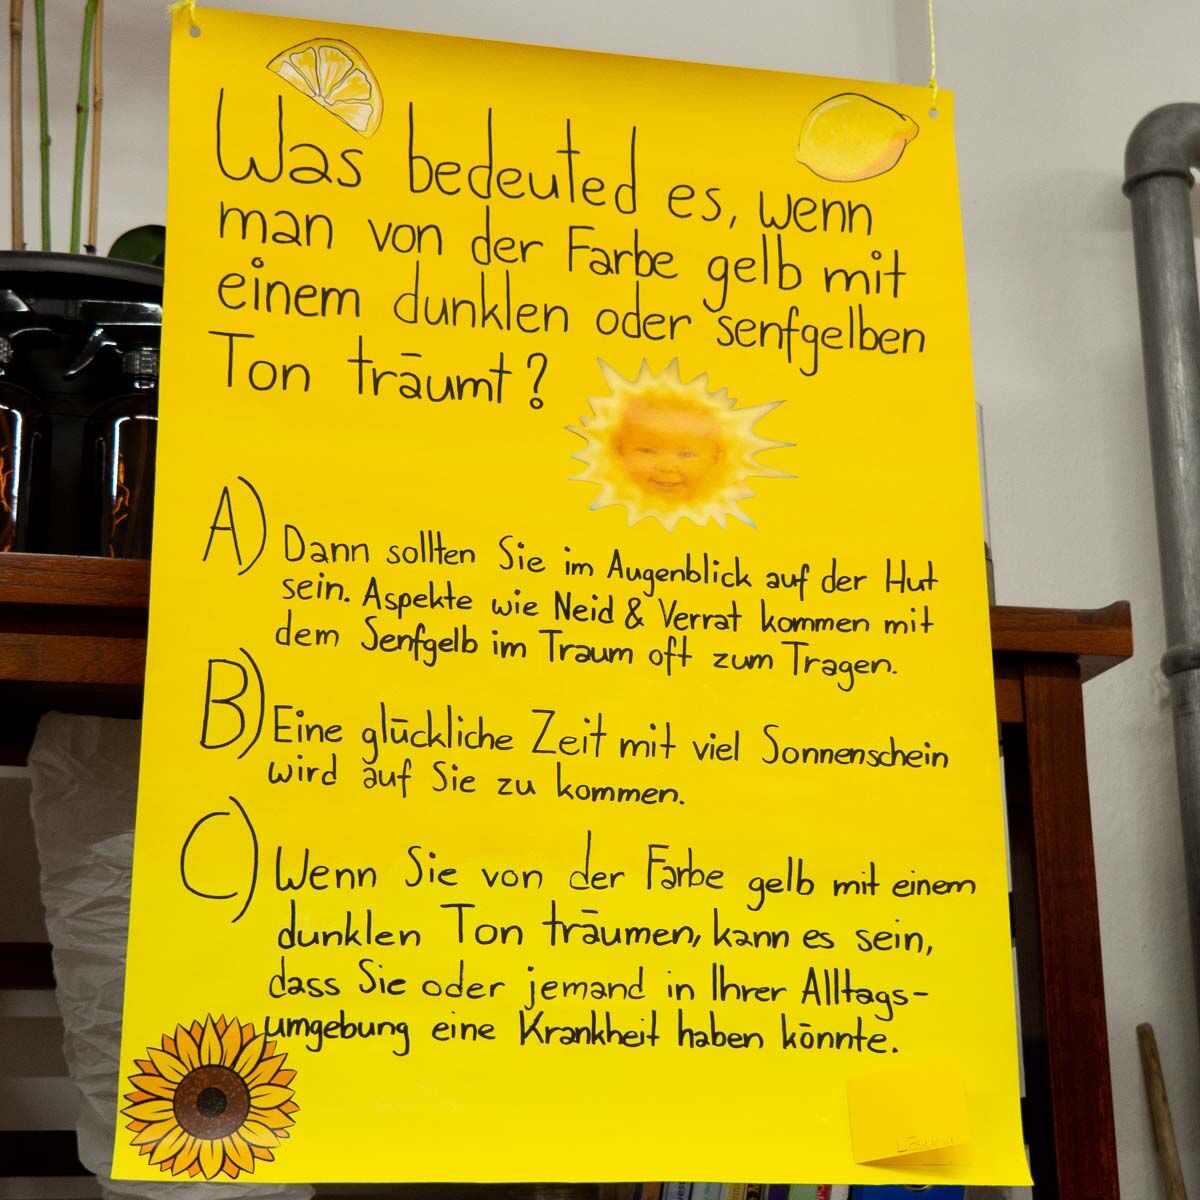 Was bedeuted es, wenn
man von der Farbe gelb mit
einem dunklen oder senfgelben
Ton träumt?
A) Dann sollten Sie im Augenblick auf der Hut
sein. Aspekte wie Neid & Verrat kommen mit
dem Senfgelb im Traum oft zum Tragen.
B) Eine glückliche Zeit mit viel Sonnenschein
wird auf Sie zu kommen.
C) Wenn Sie von der Farbe gelb mit einem
dunklen Ton träumen, kann es sein,
dass Sie oder jemand in Ihrer Alltags-
umgebung eine Krankheit haben könnte.
Lösung